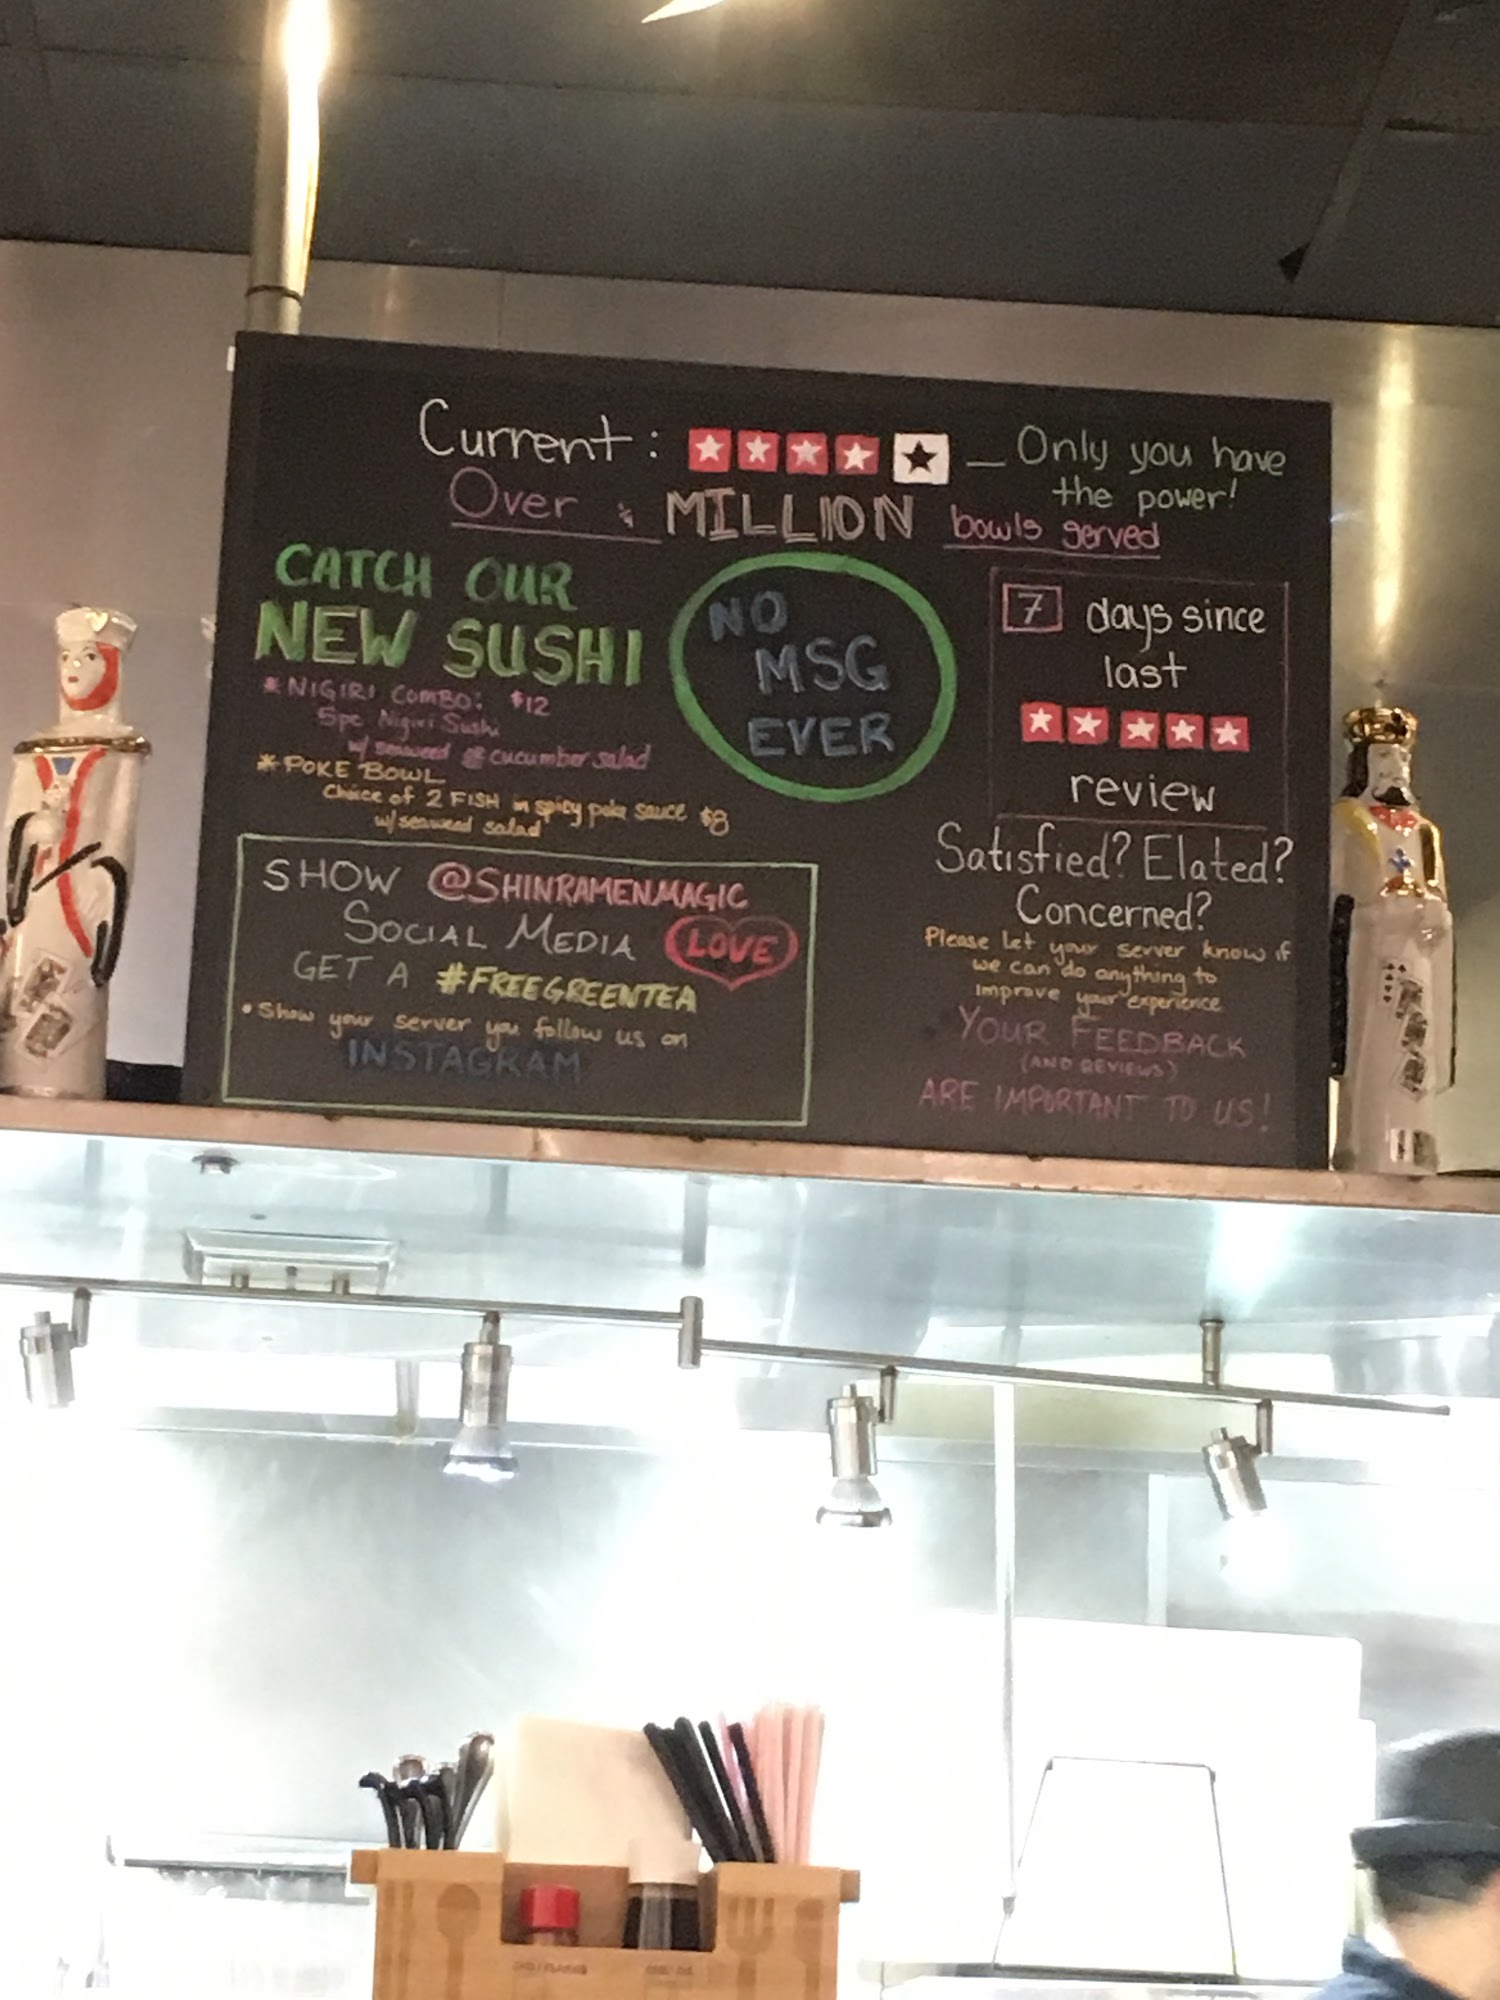 Current: — Only you have
the power!
Over ¼ MILLION bowls served
CATCH OUR
NEW SUSHI
* NIGIRI COMBO: $12
5pc Nigiri Sushi
w/ seaweed & cucumber salad
* POKE BOWL
Choice of 2 FISH in spicy poke sauce $8
w/ seaweed salad
NO
MSG
EVER
7 days since
last
review
SHOW @SHINRAMENMAGIC
SOCIAL MEDIA LOVE
GET A #FREEGREENTEA
• Show your server you follow us on
INSTAGRAM
Satisfied? Elated?
Concerned?
Please let your server know if
we can do anything to
improve your experience
YOUR FEEDBACK
(AND REVIEWS)
ARE IMPORTANT TO US!